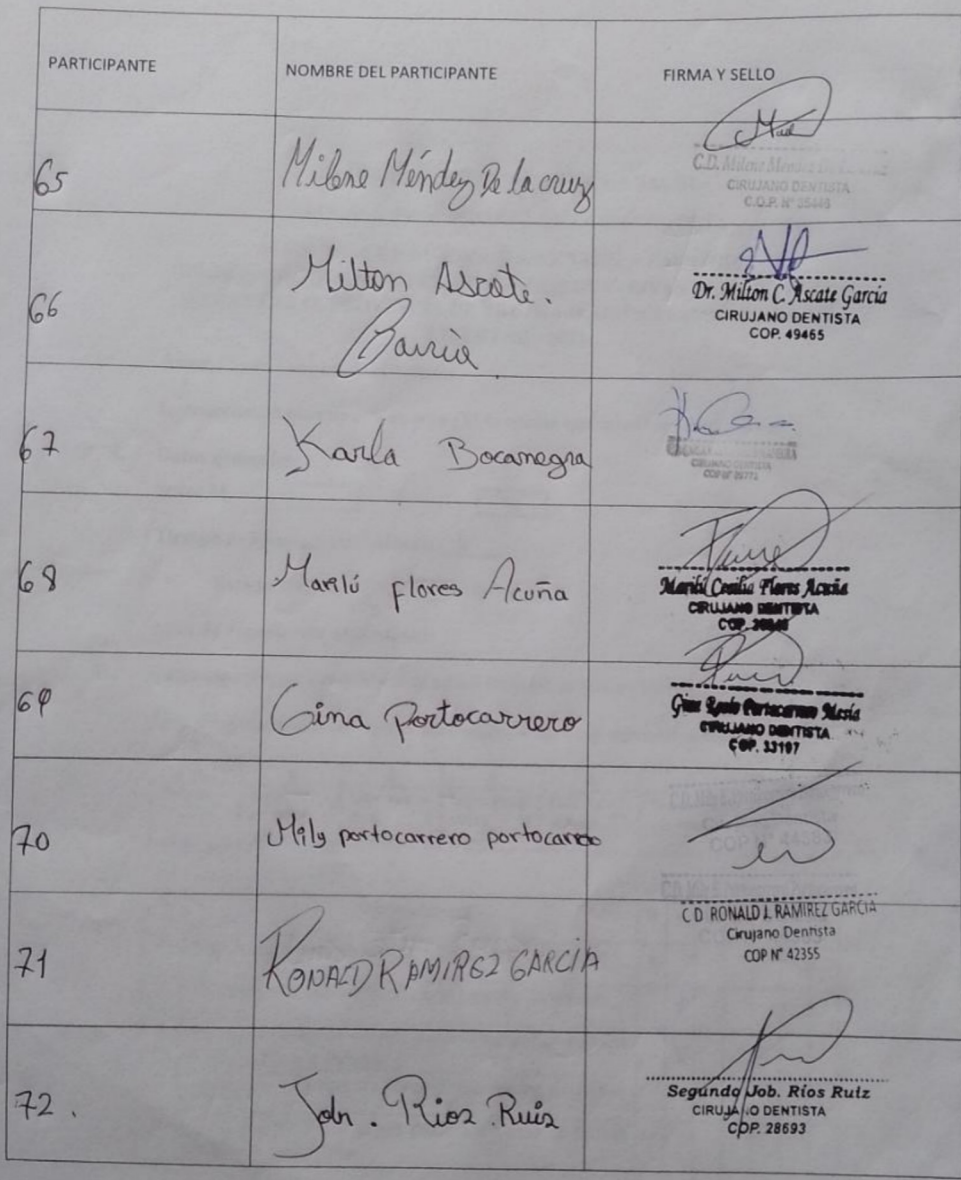 PARTICIPANTE
NOMBRE DEL PARTICIPANTE
FIRMA Y SELLO
65
Milene Méndez De la cruz
C.D. Milene Méndez De
CIRUJANO DENTISTA
C.O.P. N°
66
Milton Ascate.
Dr. Milton C. Ascate García
CIRUJANO DENTISTA
COP. 49465
67
Karla Bocanegra
CIRUJANO DENTISTA
COP N°
68
Marilú flores Acuña
Marilú Cecilia Flores Acuña
CIRUJANO DENTISTA
COP.
69
Gina Portocarrero
Gina Portocarrero Mesía
CIRUJANO DENTISTA
COP. 33197
70
Mily portocarrero portocarrero
71
RONALD RAMIREZ GARCIA
C D RONALD J. RAMIREZ GARCIA
Cirujano Dentista
COP N° 42355
72.
Rios Ruiz
Segundo Job. Ríos Ruiz
CIRUJANO DENTISTA
COP. 28693